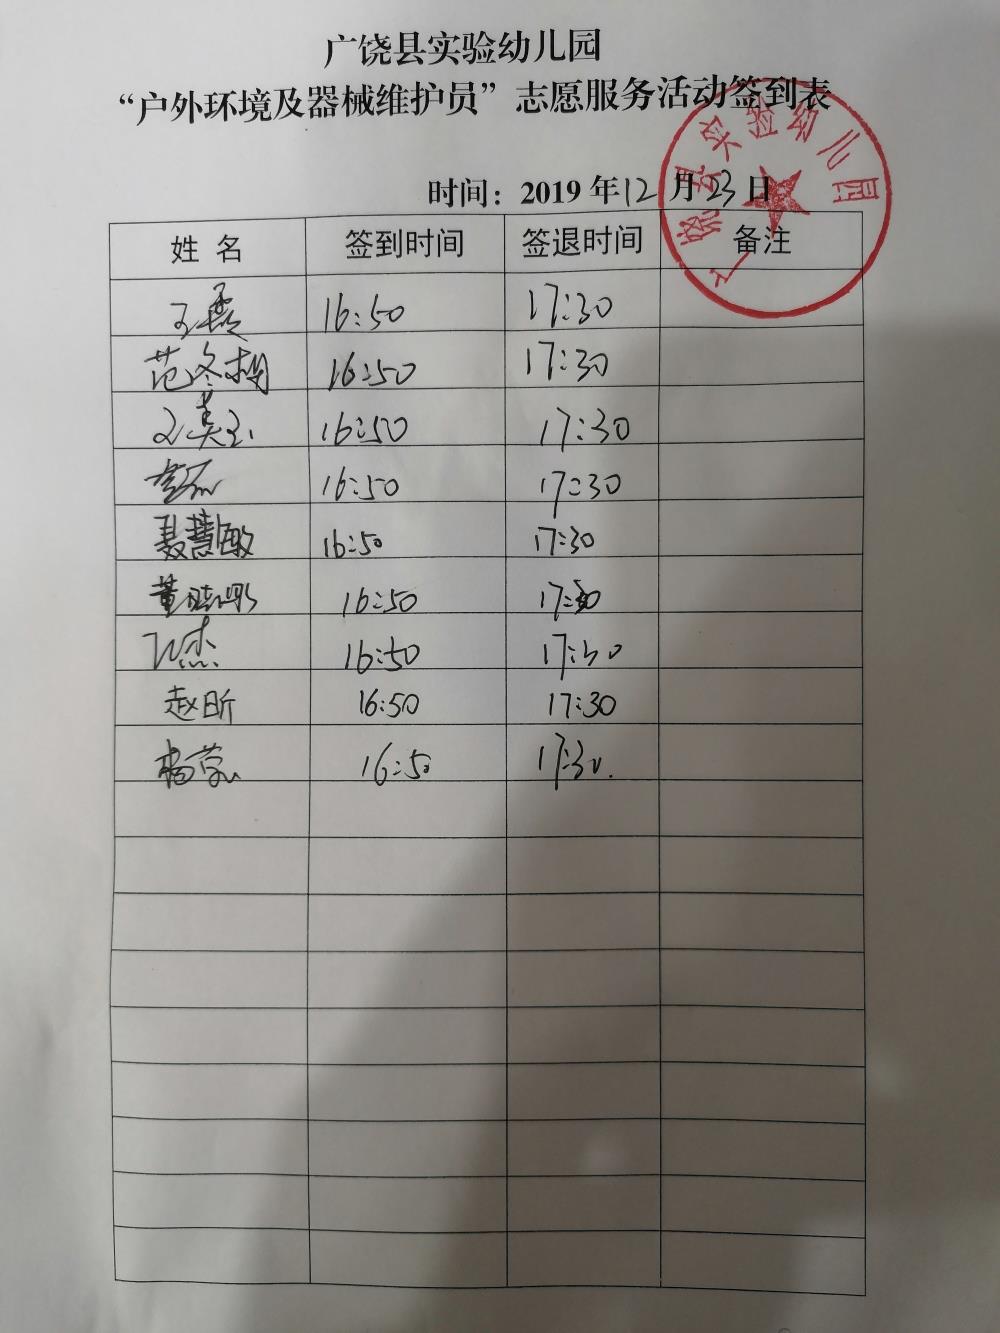 广饶县实验幼儿园
“户外环境及器械维护员”志愿服务活动签到表
时间：2019年12月23日
广饶县实验幼儿园
姓名 签到时间 签退时间 备注
王磊 16:50 17:30
范冬梅 16:50 17:30
王美玉 16:50 17:30
16:50 17:30
聂慧敏 16:50 17:30
董晓彤 16:50 17:30
杰 16:50 17:30
赵昕 16:50 17:30
杨蒙 16:50 17:30.